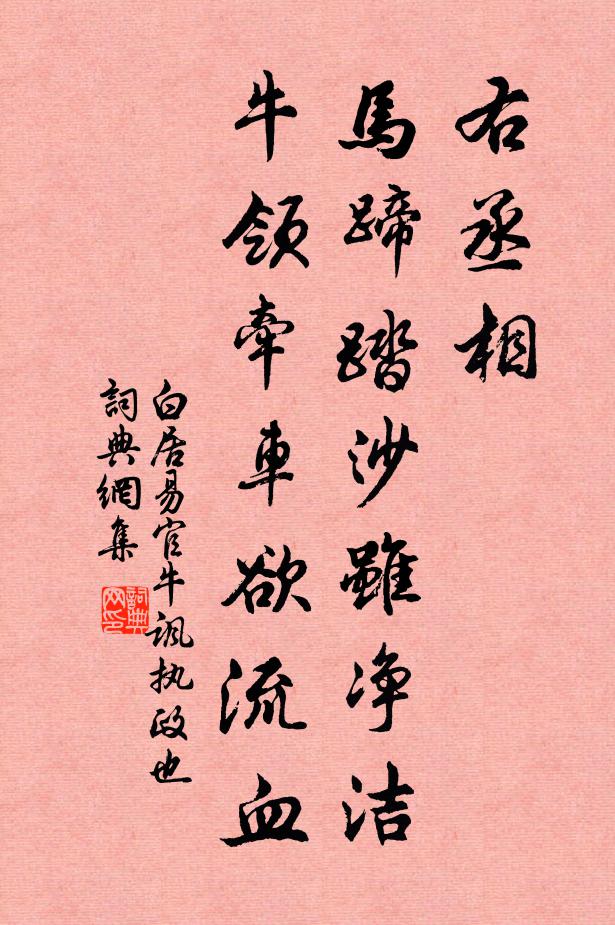 右丞相
馬蹄踏沙雖净洁
牛領牽車欲流血
白居易官牛諷执政也
詞典網集
詞典
网印